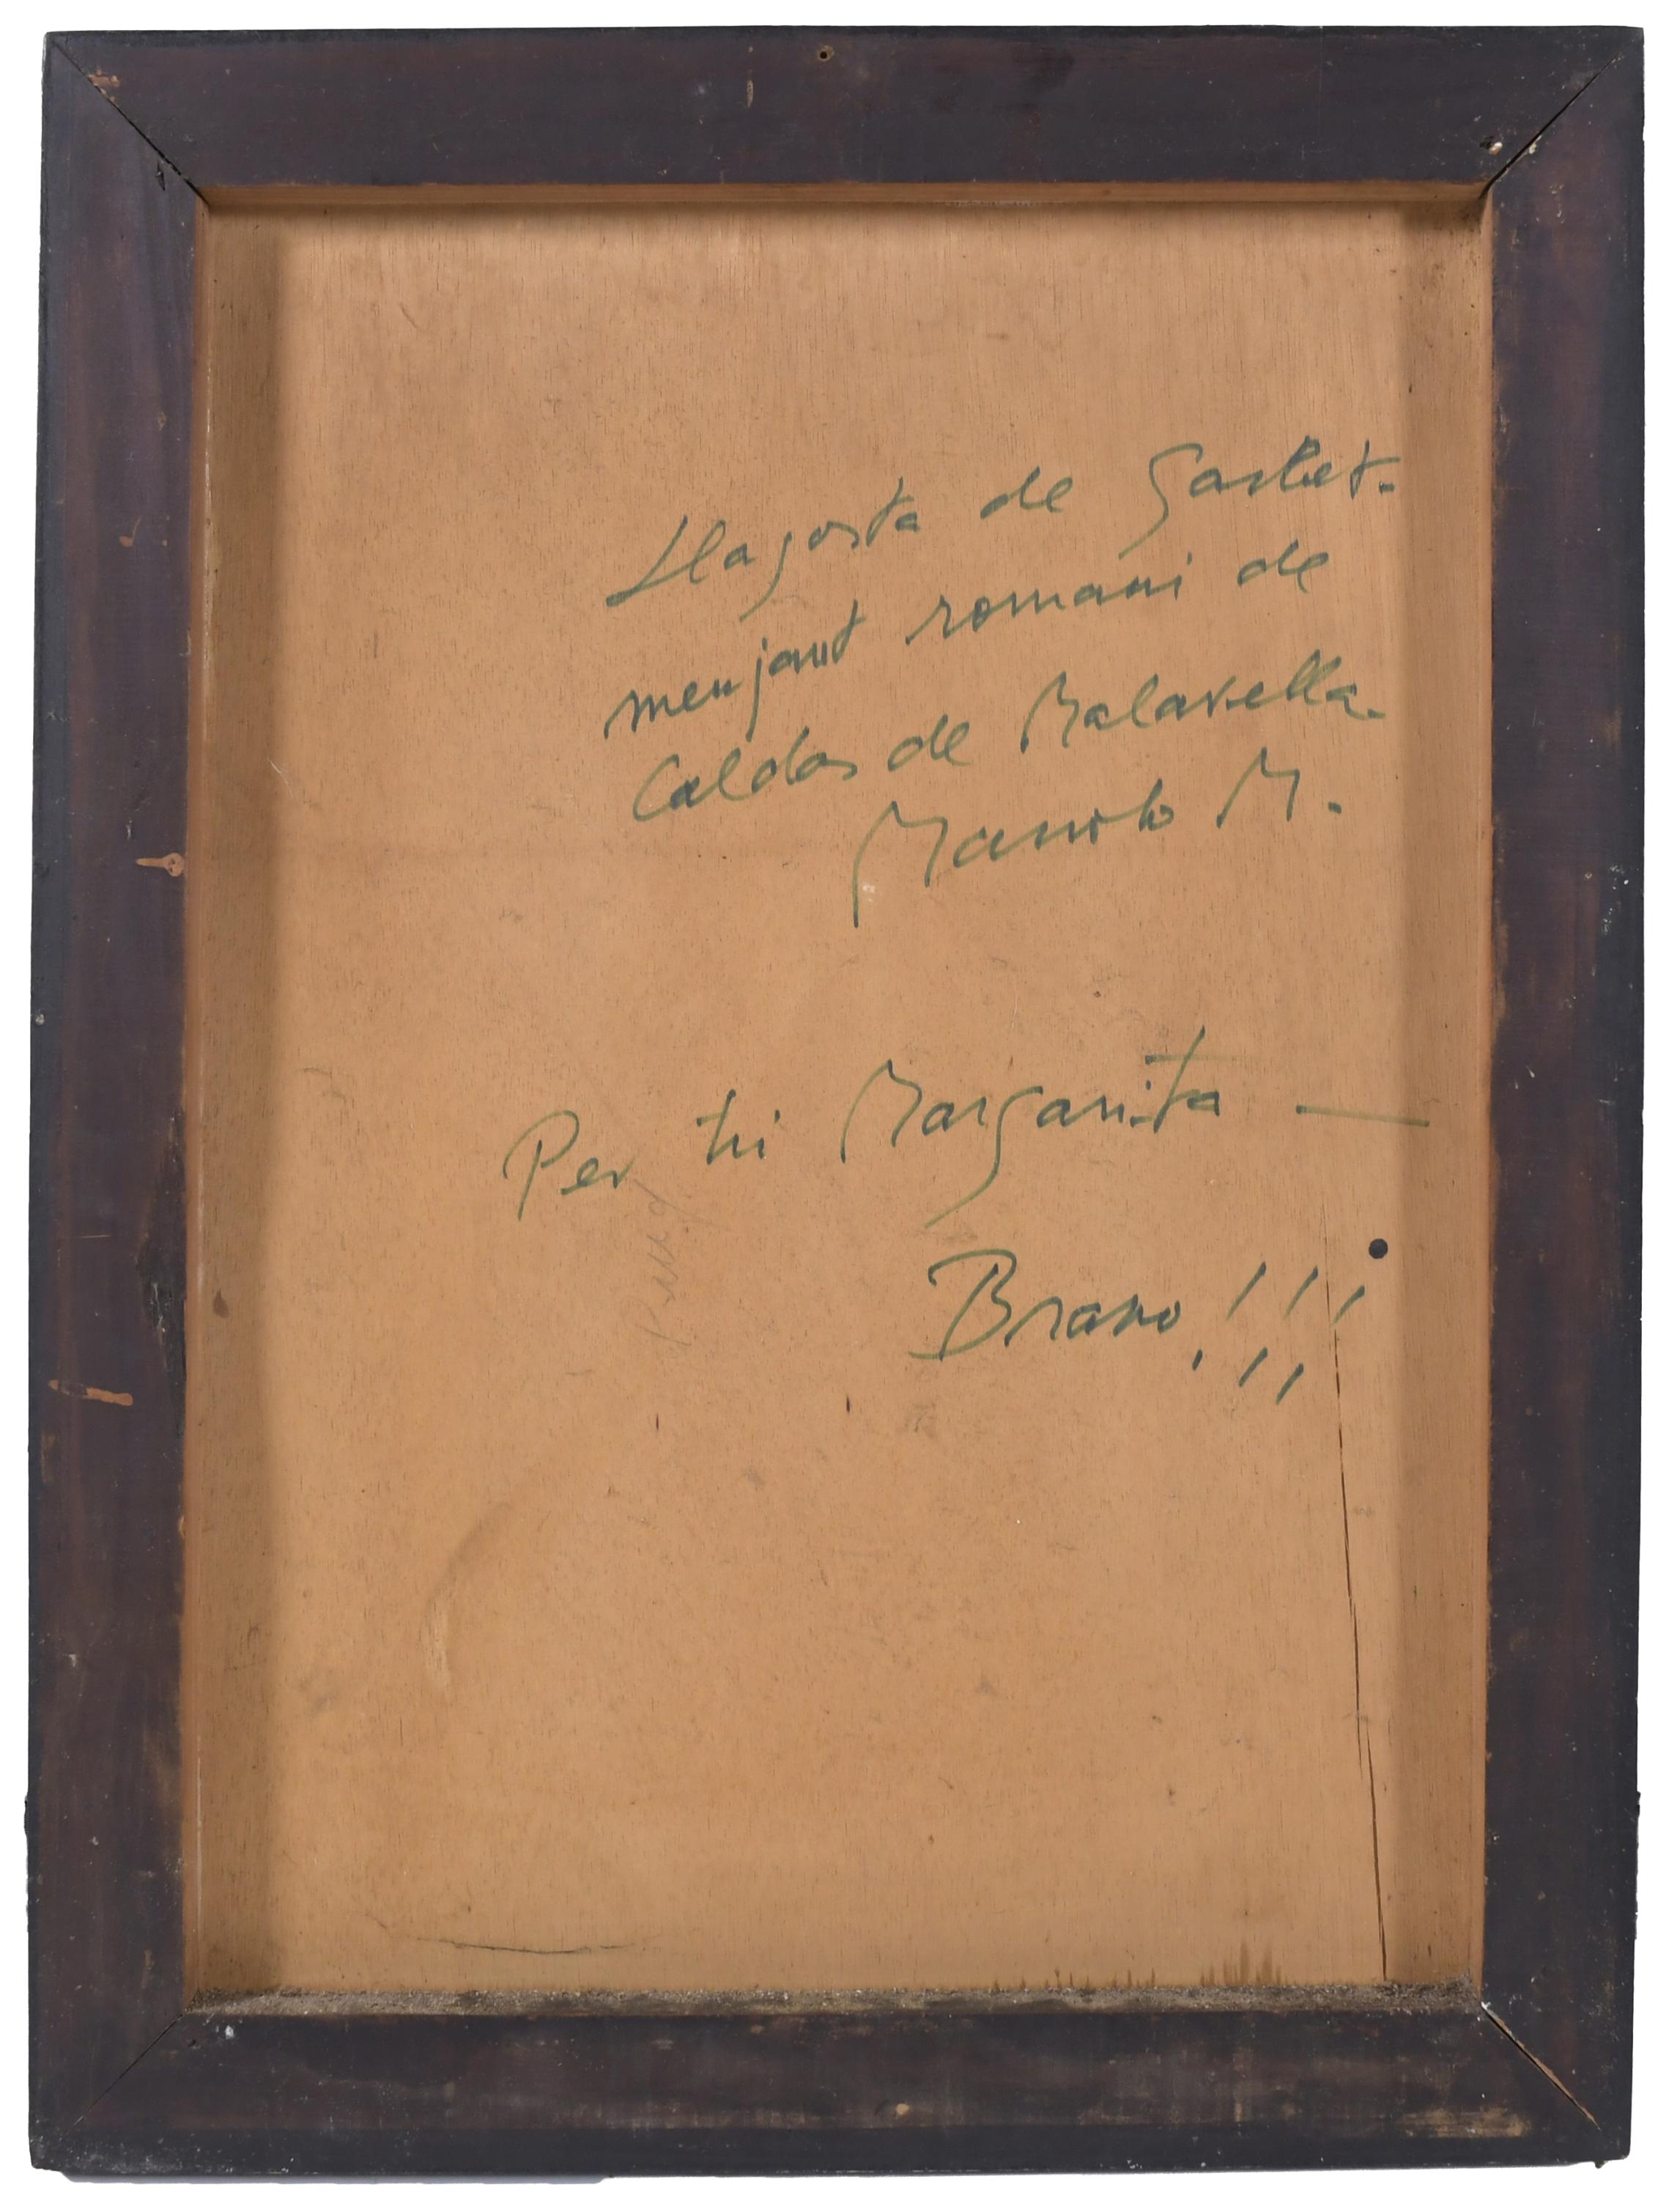 Llagosta de Gasket.
menjant romani de
Caldas de Malavella.
Manolo M.
Per tu Margarita —
Bravo!!!